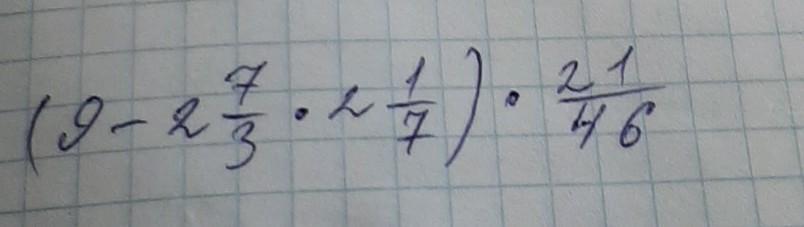 (9 - 2 7/3 · 2 1/7) · 21/46